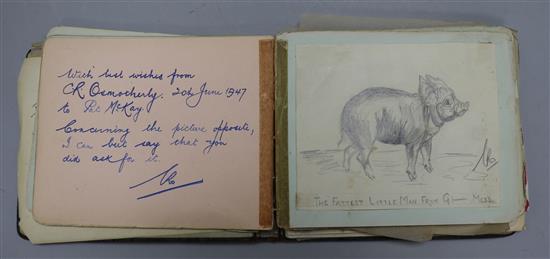 With best wishes from
CR Osmotherly. 20th June 1947
to Pat McKay.
Concerning the picture opposite,
I can but say that you
did ask for it.
THE FATTEST LITTLE MAN FROM G— MESS.